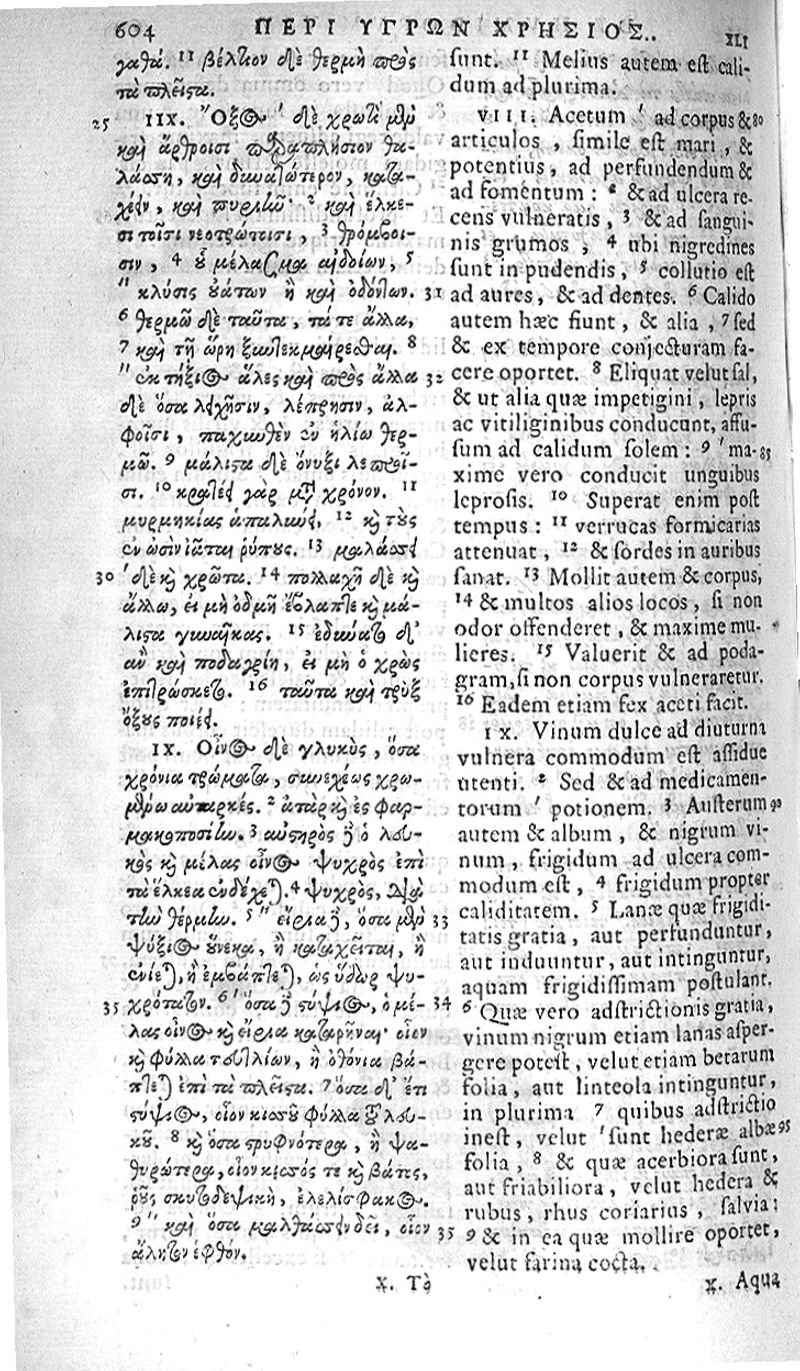 604 ΠΕΡΙ ΥΓΡΩΝ ΧΡΗΣΙΟΣ.. XLI
γαθά. 11 βέλτιον δὲ θερμὴ πρὸς
τὰ πλεῖστα.
25 IIX. Ὄξος ' δὲ χρωτὶ μὲν
καὶ ἄρθροισι παραπλήσιον θα-
λάσσῃ, καὶ δυνατώτερον, κατα-
χεῖν, καὶ πυριῆν· 2 καὶ ἕλκε-
σι τοῖσι νεοτρώτοισι, 3 θρόμβοι-
σιν, 4 οὗ μέλασμα αἰδοίων, 5
" κλύσις οὐάτων ἢ καὶ ὀδόντων. 31
6 θερμῷ δὲ ταῦτα, τά τε ἄλλα,
7 καὶ τῇ ὥρῃ ξυντεκμαίρεσθαι. 8
" ἐκτήξιος ἅλες καὶ πρὸς ἄλλα 32
δὲ ὅσα λειχῆσιν, λέπρησιν, ἀλ-
φοῖσι, παχυνθὲν ἐν ἡλίῳ θερ-
μῷ. 9 μάλιστα δὲ ὄνυξι λεπροῖ-
σι. 10 κρατέει γὰρ μετὰ χρόνον. 11
μυρμηκίας ἁπαλύνει, 12 καὶ τοὺς
ἐν ὠσὶν ἰᾶται ῥύπους. 13 μαλάσσει
30 ' δὲ καὶ χρῶτα. 14 πολλαχῆ δὲ καὶ
ἄλλῳ, εἰ μὴ ὀδμὴ ἔβλαπτε καὶ μά-
λιστα γυναῖκας. 15 ἐδύνατο δ'
ἂν καὶ ποδαγρίη, εἰ μὴ ὁ χρὼς
ἐπιτρώσκετο. 16 ταῦτα καὶ τρὺξ
ὄξους ποιέει.
IX. Οἶνος δὲ γλυκὺς, ὅσα
χρόνια τρώματα, συνεχέως χρω-
μένῳ αὐταρκές. 2 ἀτὰρ καὶ ἐς φαρ-
μακοποσίην. 3 αὐστηρὸς δὲ ὁ λευ-
κὸς καὶ μέλας οἶνος ψυχρὸς ἐπὶ
τὰ ἕλκεα ἐνδέχεται. 4 ψυχρὸς, διὰ
τὴν θέρμην. 5 " εἴρια δὲ, ὅσα μὲν 33
ψύξιος οὕνεκα, ἢ καταχεῖται, ἢ
ἐνίεται, ἢ ἐμβάπτεται, ὡς ὕδωρ ψυ-
35 χρότατον. 6 ' ὅσα δὲ στύψιος, ὁ μέ- 34
λας οἶνος καὶ εἴρια καταρῆναι· οἷον
καὶ φύλλα τευτλίων, ἢ ὀθόνια βά-
πτεται ἐπὶ τὰ πλεῖστα. 7 ὅσα δ' ἔτι
στύψιος, οἷον κισσοῦ φύλλα τοῦ λευ-
κοῦ. 8 καὶ ὅσα στρυφνότερα, ἢ ψα-
θυρώτερα, οἷον κισσός τε καὶ βάτος,
ῥοῦς σκυτοδεψικὴ, ἐλελίσφακος.
9 " καὶ ὅσα μαλθάσσειν δεῖ, οἷον 35
ἄλητον ἑφθόν.
X. Τὸ
sunt. 11 Melius autem est cali-
dum ad plurima.
VIII. Acetum ' ad corpus & 80
articulos, simile est mari, &
potentius, ad perfundendum &
ad fomentum: 2 & ad ulcera re-
cens vulneratis, 3 & ad sangui-
nis grumos, 4 ubi nigredines
sunt in pudendis, 5 collutio est
ad aures, & ad dentes. 6 Calido
autem hæc fiunt, & alia, 7 sed
& ex tempore conjecturam fa-
cere oportet. 8 Eliquat velut sal,
& ut alia quæ impetigini, lepris
ac vitiliginibus conducunt, affu-
sum ad calidum solem: 9 ' ma- 85
xime vero conducit unguibus
leprosis. 10 Superat enim post
tempus: 11 verrucas formicarias
attenuat, 12 & sordes in auribus
sanat. 13 Mollit autem & corpus,
14 & multos alios locos, si non
odor offenderet, & maxime mu-
lieres. 15 Valuerit & ad poda-
gram, si non corpus vulneraretur.
16 Eadem etiam fex aceti facit.
IX. Vinum dulce ad diuturna
vulnera commodum est assidue
utenti. 2 Sed & ad medicamen-
torum ' potionem. 3 Austerum 90
autem & album, & nigrum vi-
num, frigidum ad ulcera com-
modum est, 4 frigidum propter
caliditatem. 5 Lanæ quæ frigidi-
tatis gratia, aut perfunduntur,
aut induuntur, aut intinguntur,
aquam frigidissimam postulant.
6 Quæ vero adstrictionis gratia,
vinum nigrum etiam lanas asper-
gere potest, velut etiam betarum
folia, aut linteola intinguntur,
in plurima 7 quibus adstrictio
inest, velut ' sunt hederæ albæ 95
folia, 8 & quæ acerbiora sunt,
aut friabiliora, velut hedera &
rubus, rhus coriarius, salvia:
9 & in ea quæ mollire oportet,
velut farina cocta.
X. Aqua